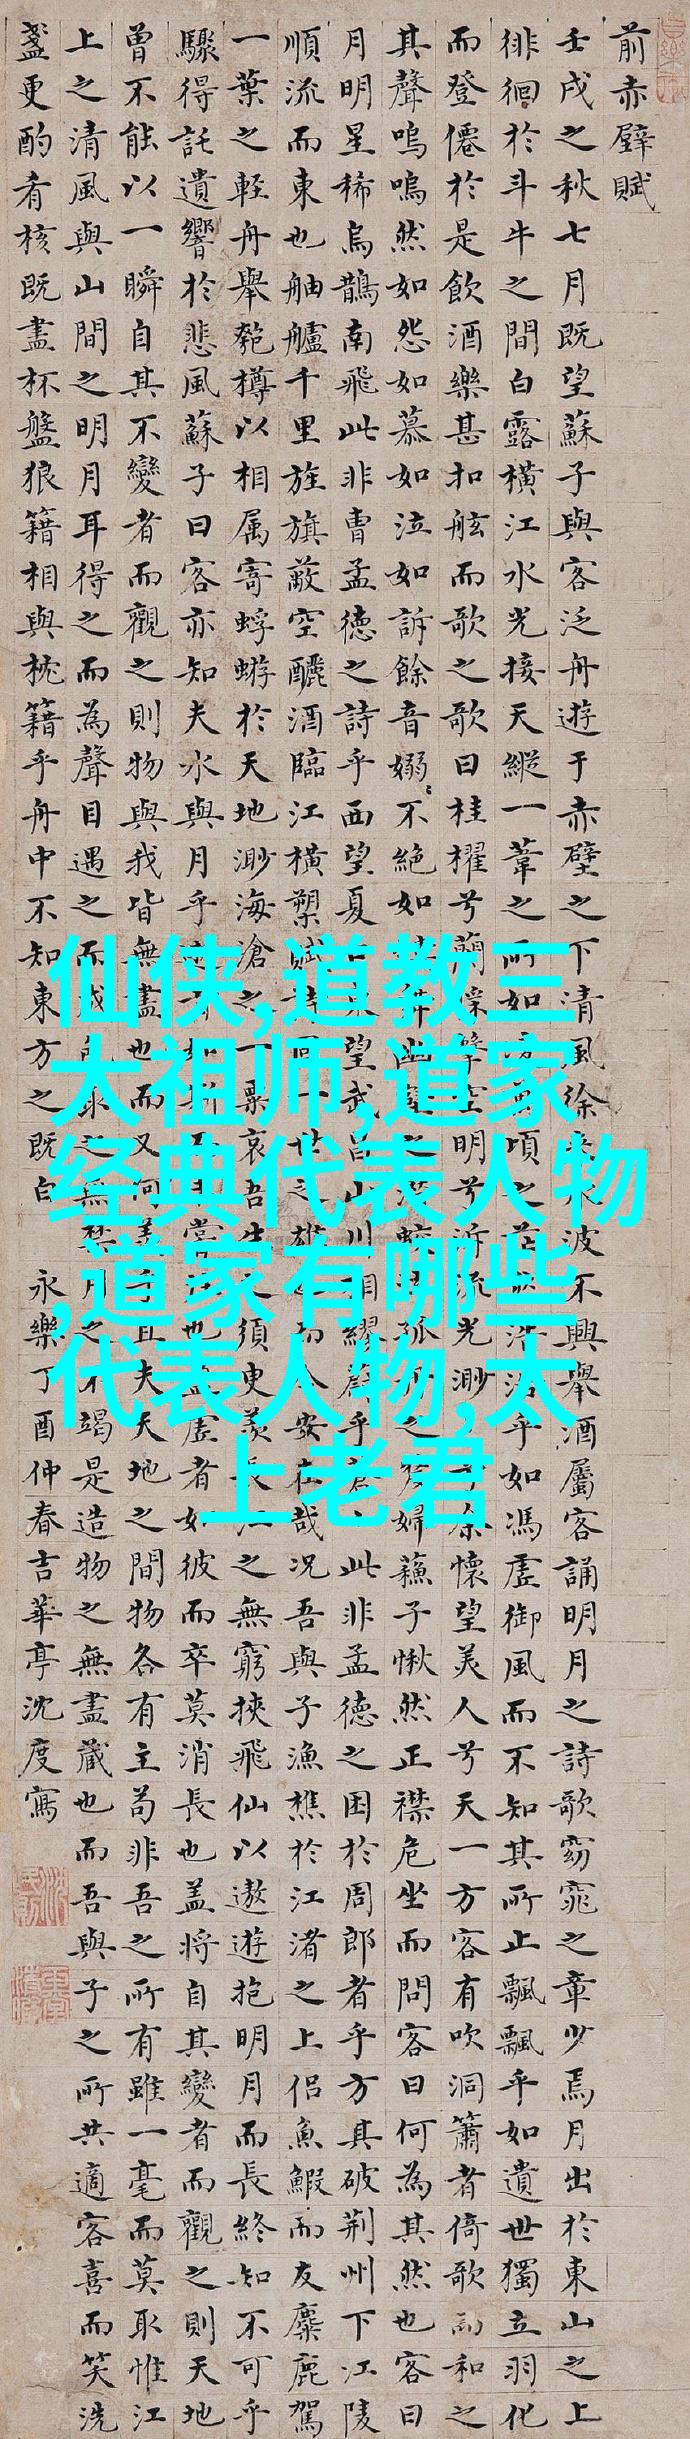 前赤壁賦
壬戌之秋七月既望蘇子與客泛舟遊于赤壁之下清風徐來水波不興舉酒屬客誦明月之詩歌窈窕之章少焉月出於東山之上
徘徊於斗牛之間白露橫江水光接天縱一葦之所如凌萬頃之茫然浩浩乎如馮虛御風而不知其所止飄飄乎如遺世獨立羽化
而登僊於是飲酒樂甚扣舷而歌之歌曰桂櫂兮蘭槳擊空明兮泝流光渺渺兮余懷望美人兮天一方客有吹洞簫者倚歌而和之
其聲嗚嗚然如怨如慕如泣如訴餘音嫋〻不絕如舞幽壑之潛蛟泣孤舟之嫠婦蘇子愀然正襟危坐而問客曰何為其然也客曰
月明星稀烏鵲南飛此非曹孟德之詩乎西望夏口東望武昌山川相繆鬱乎蒼此非孟德之困於周郎者乎方其破荊州下江陵
順流而東也舳艫千里旌旗蔽空釃酒臨江橫槊賦詩固一世之雄也而今安在哉況吾與子漁樵於江渚之上侶魚鰕而友麋鹿駕
一葉之輕舟舉匏樽以相属寄蜉蝣於天地渺海滄之一粟哀吾生之須臾羨長江之無窮挾飛仙以遨遊抱明月而長終知不可乎
驟得託遺響於悲風蘇子曰客亦知夫水與月乎逝者如斯而未嘗往也盈虛者如彼而卒莫消長也蓋將自其變者而觀之則天地
曾不能以一瞬自其不變者而觀之則物與我皆無盡也而又何羨乎且夫天地之間物各有主苟非吾之所有雖一毫而莫取惟江
上之清風與山間之明月耳得之而為聲目遇之而成色取之無禁用之不竭是造物之無盡藏也而吾與子之所共適客喜而笑洗
盞更酌肴核既盡杯盤狼籍相與枕籍乎舟中不知東方之既白 永樂丁酉仲春吉華亭沈度寫
仙侠,道教三
大祖师,道家
经典代表人物
,道家有哪些
代表人物,太
上老君